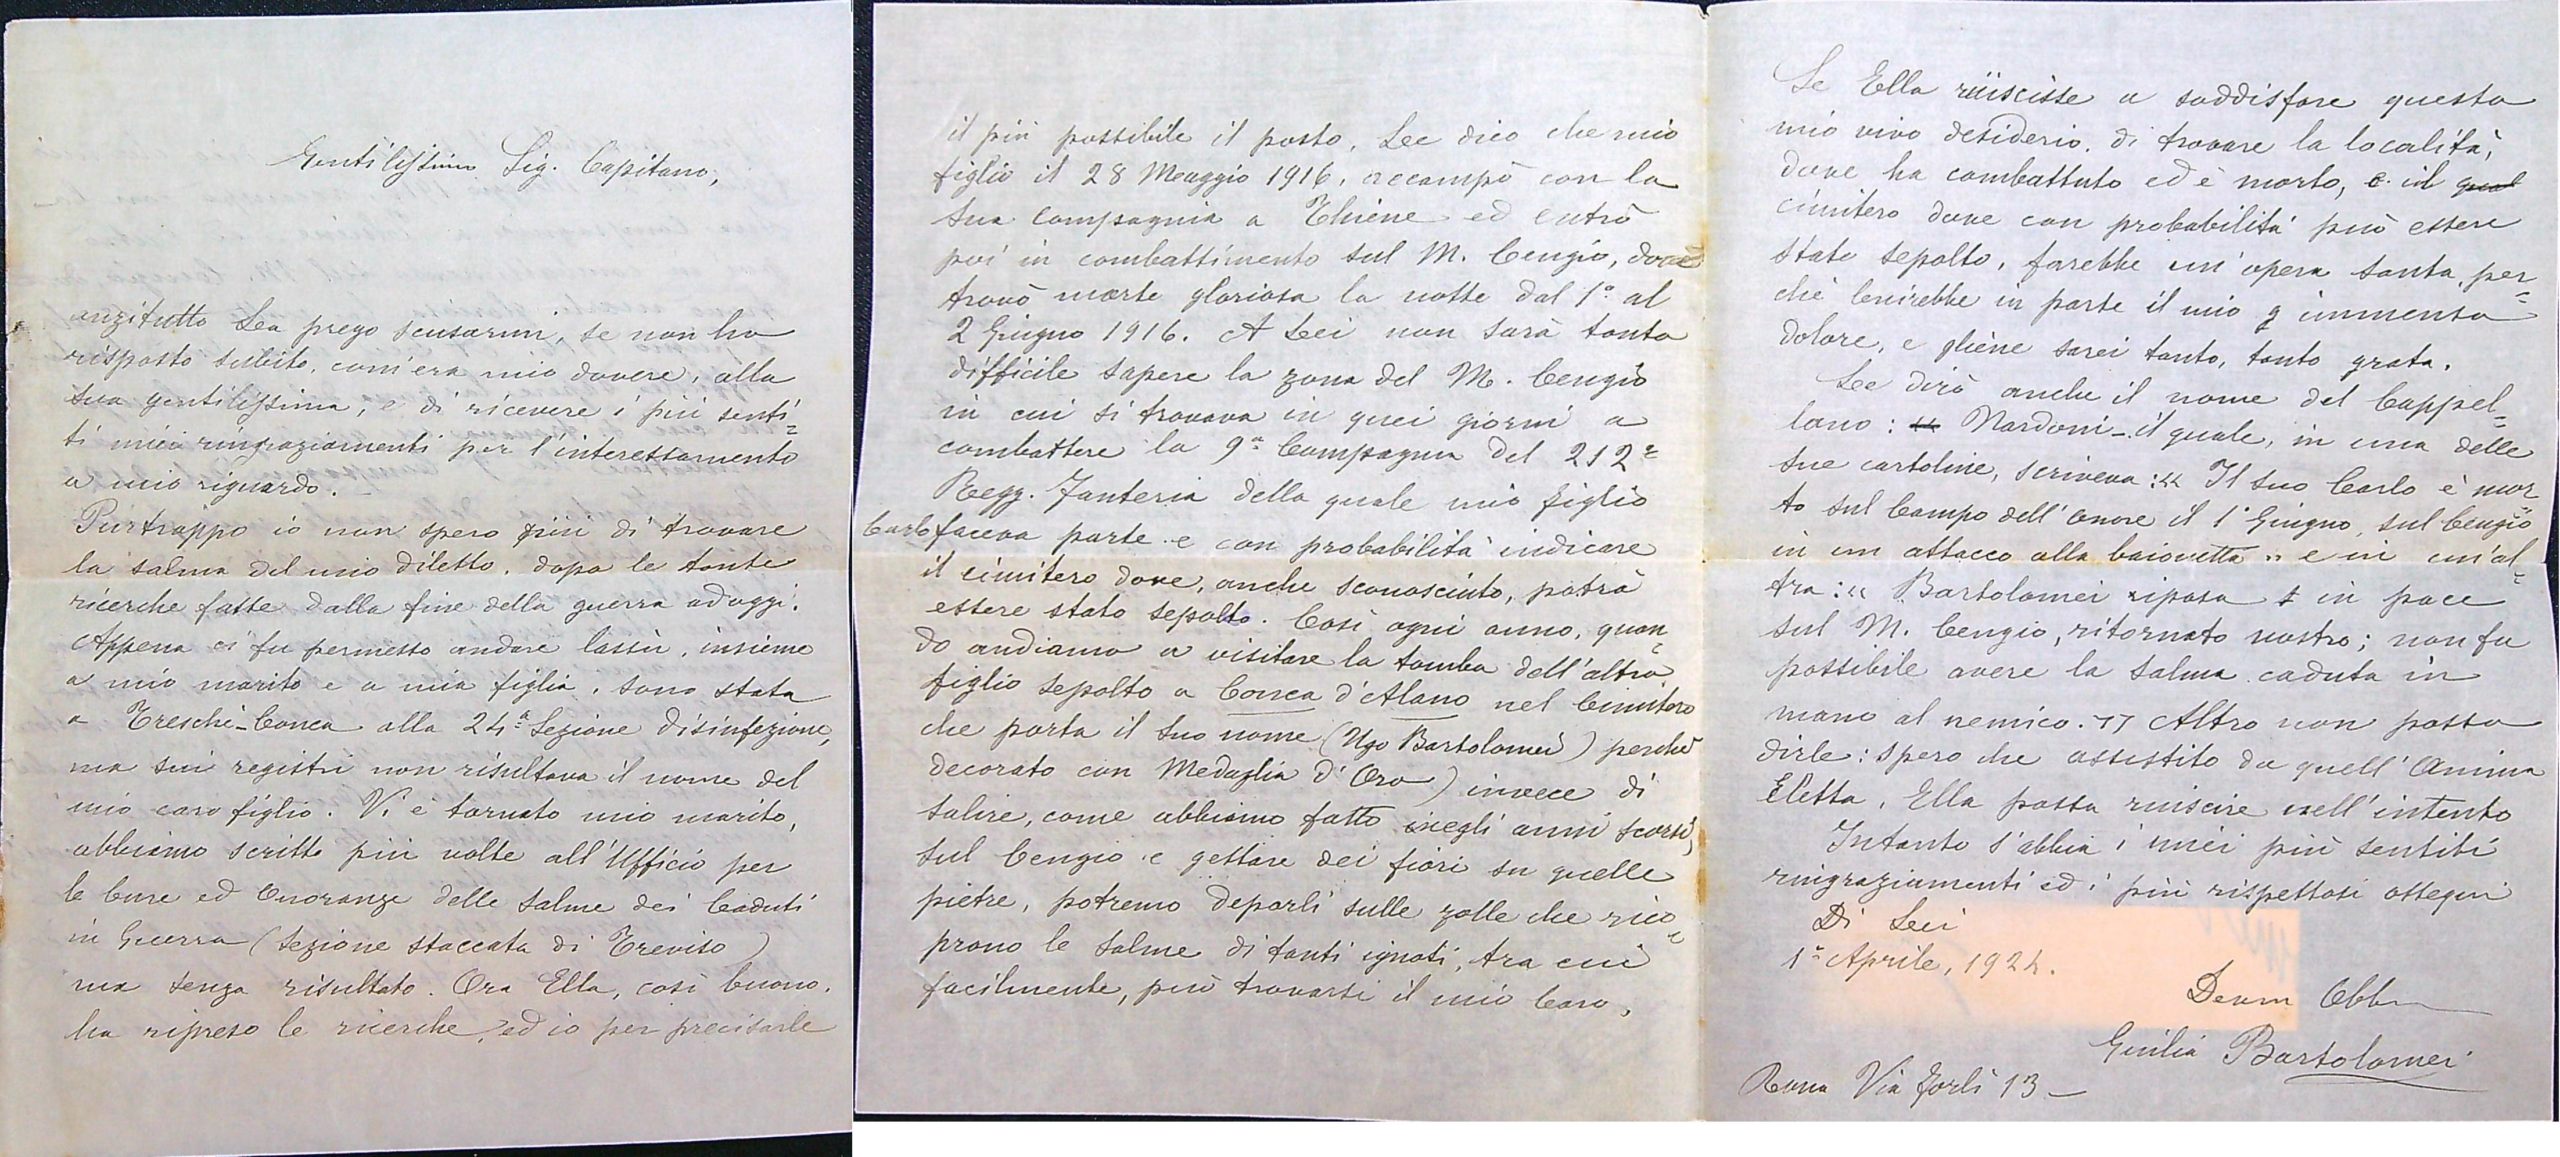 Gentilissimo Sig. Capitano,
anzitutto Lea prego scusarmi, se non ho
risposto subito, com'era mio dovere, alla
sua gentilissima, e di ricevere i più senti=
ti miei ringraziamenti per l'interessamento
a mio riguardo.
Purtroppo io non spero più di trovare
la salma del mio diletto, dopo le tante
ricerche fatte dalla fine della guerra ad oggi.
Appena ci fu permesso andare lassù, insieme
a mio marito e a mia figlia, sono stata
a Treschè-Conca alla 24ª Sezione disinfezione,
ma sui registri non risultava il nome del
mio caro figlio. Vi è tornato mio marito,
abbiamo scritto più volte all'Ufficio per
le Cure ed Onoranze delle Salme dei Caduti
in Guerra (Sezione staccata di Treviso)
ma senza risultato. Ora Ella, così buono,
ha ripreso le ricerche, ed io per precisarle
il più possibile il posto, Lee dico che mio
figlio il 28 Maggio 1916, accampò con la
sua Compagnia a Thiene ed entrò
poi in combattimento sul M. Cengio, dove
trovò morte gloriosa la notte dal 1º al
2 Giugno 1916. A Lei non sarà tanto
difficile sapere la zona del M. Cengio
in cui si trovava in quei giorni a
combattere la 9ª Compagnia del 212º
Regg. Fanteria della quale mio figlio
Carlo faceva parte e con probabilità indicare
il cimitero dove, anche sconosciuto, potrà
essere stato sepolto. Così ogni anno, quan=
do andiamo a visitare la tomba dell'altro
figlio sepolto a Conca d'Alano nel Cimitero
che porta il suo nome (Ugo Bartolomei) perchè
decorato con Medaglia d'Oro) invece di
salire, come abbiamo fatto negli anni scorsi,
sul Cengio e gettare dei fiori su quelle
pietre, potremo deporli sulle zolle che rico=
prono le salme di tanti ignoti, tra cui
facilmente, può trovarsi il mio Caro.
Se Ella riuscisse a soddisfare questo
mio vivo desiderio, di trovare la località,
dove ha combattuto ed è morto, e il qual
cimitero dove con probabilità può essere
stato sepolto, farebbe un'opera santa, per=
chè lenirebbe in parte il mio immenso
dolore, e gliene sarei tanto, tanto grata.
Lee dirò anche il nome del Cappel=
lano: Nardoni - il quale, in una delle
sue cartoline, scriveva: "Il suo Carlo è mor
to sul Campo dell'onore il 1º Giugno, sul Cengio
in un attacco alla baionetta" e in un'al=
tra: "Bartolomei riposa in pace
sul M. Cengio, ritornato nostro; non fu
possibile avere la salma caduta in
mano al nemico." Altro non posso
dirle: spero che assistito da quell'Anima
Eletta, Ella possa riuscire nell'intento
Intanto s'abbia i miei più sentiti
ringraziamenti ed i più rispettosi ossequi
Di Lei
1º Aprile, 1924.
Devm Obbm
Giulia Bartolomei
Roma Via Forlì 13 -